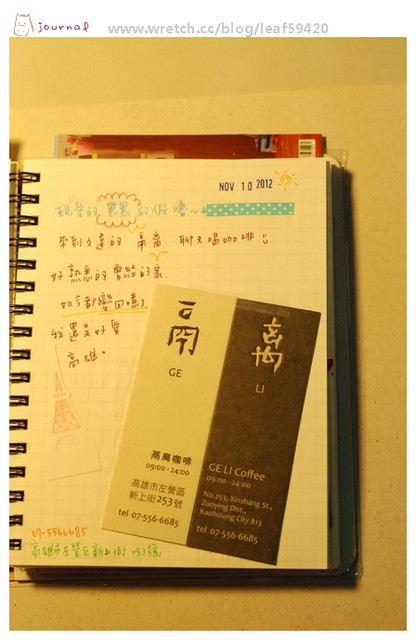 journal
www.wretch.cc/blog/leaf59420
NOV 10 2012
親愛的 黑黑 放假嚕~
來到久違的 鬲离 聊天喝咖啡
好熟悉的曾經的家.
如今都變回憶了
我還是好愛
高雄。
鬲
GE
离
LI
鬲离咖啡
09:00 - 24:00
高雄市左營區
新上街253號
tel 07-556-6685
GE LI Coffee
09:00 - 24:00
No.253, Xinshang St.,
Zuoying Dist.,
Kaohsiung City 813
tel 07-556-6685
07-5566685
高雄市左營區新上街 253號